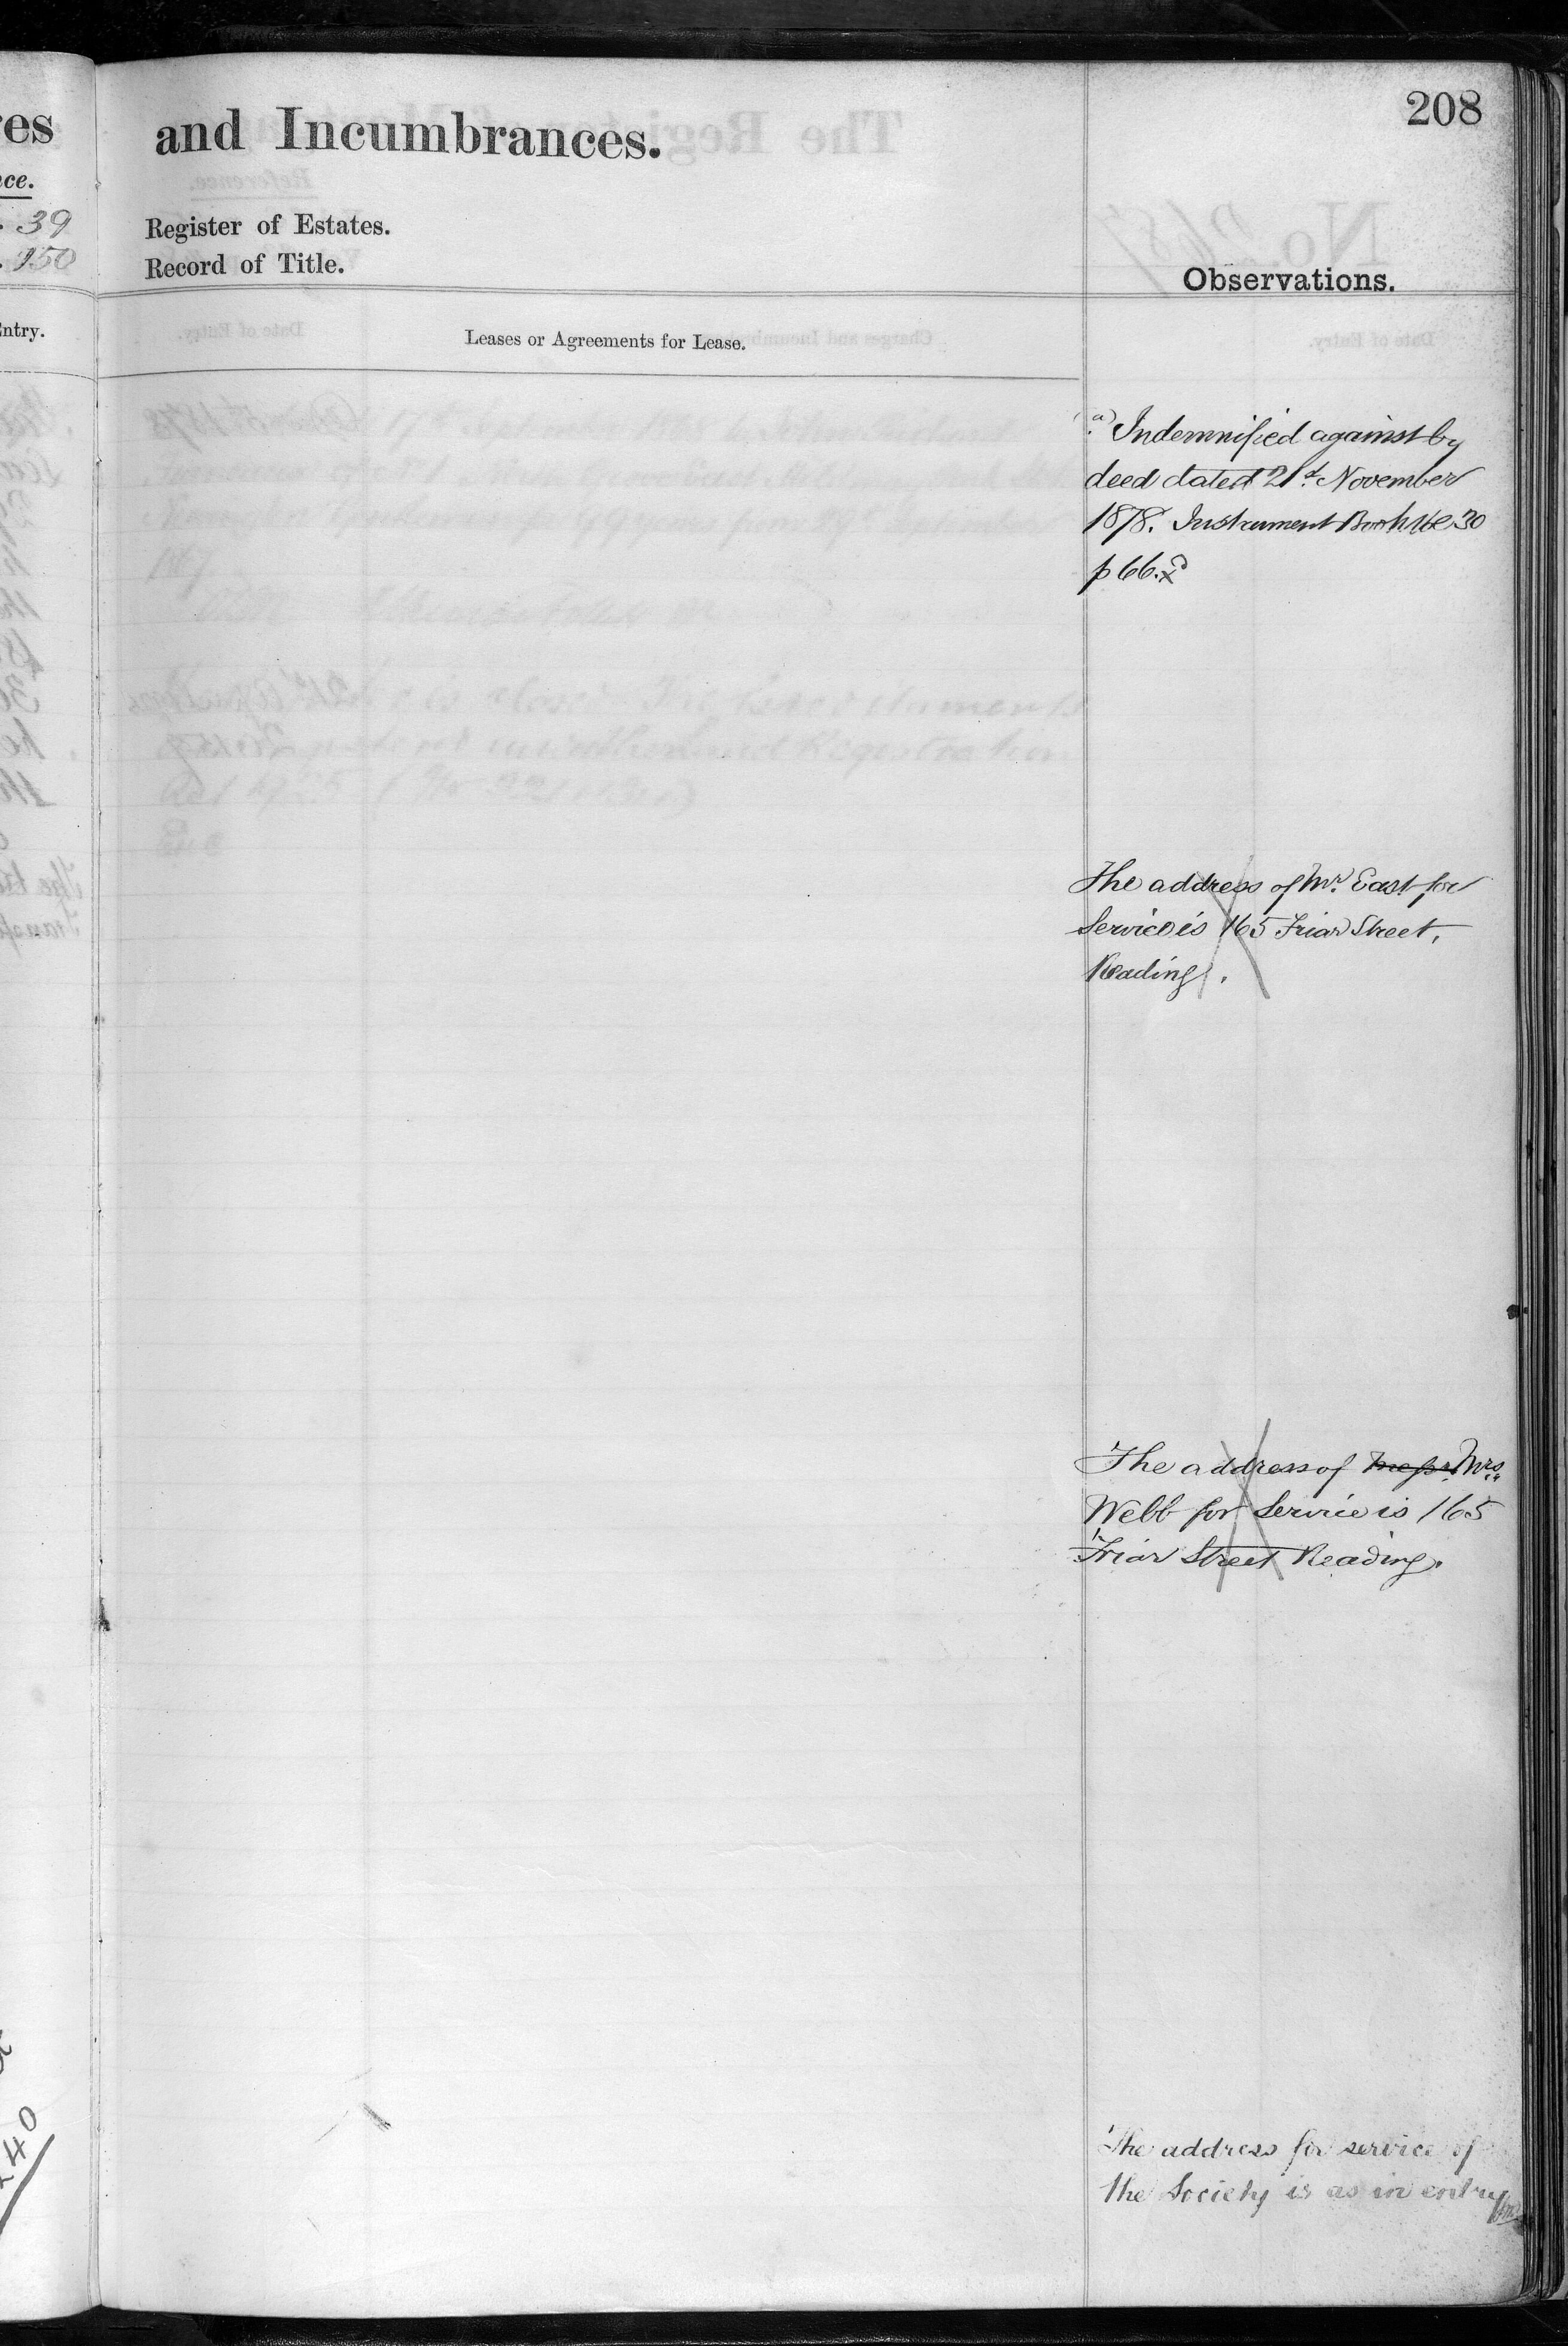 res
and Incumbrances.
208
ce.
39
150
Register of Estates.
Record of Title.
Observations.
Entry.
Leases or Agreements for Lease.
(a) Indemnified against by
deed dated 21st November
1878. Instrument Book 30
p 66.
The address of Mr. East for
Service is 165 Friar Street,
Reading.
The address of Messrs. Mrs.
Webb for Service is 165
Friar Street Reading.
40
The address for service of
the Society is as in entry